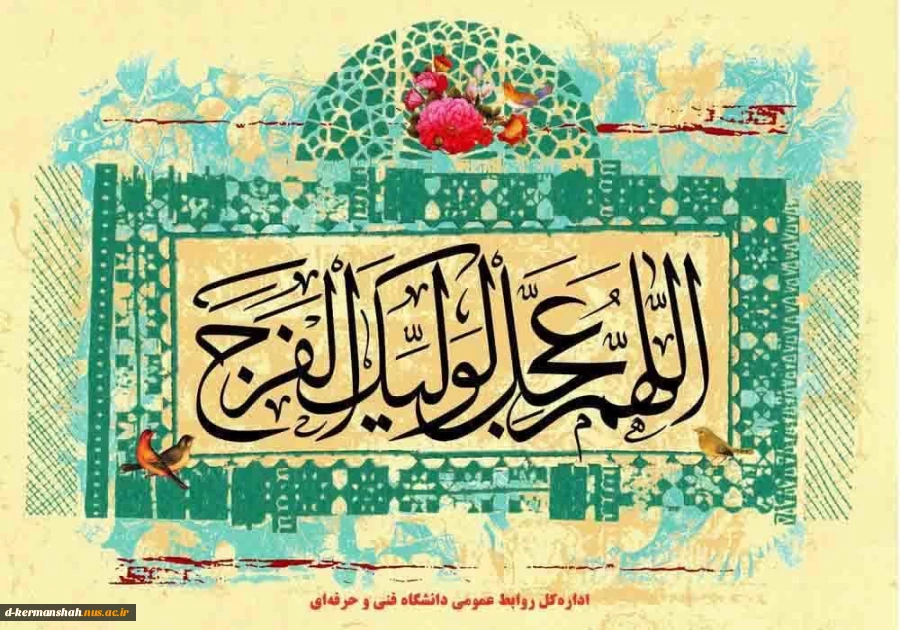 اللّٰهُمَّ عَجِّل لِوَلِيِّكَ الفَرَجَ
اداره‌کل روابط عمومی دانشگاه فنی و حرفه‌ای
d-kermanshah.nus.ac.ir